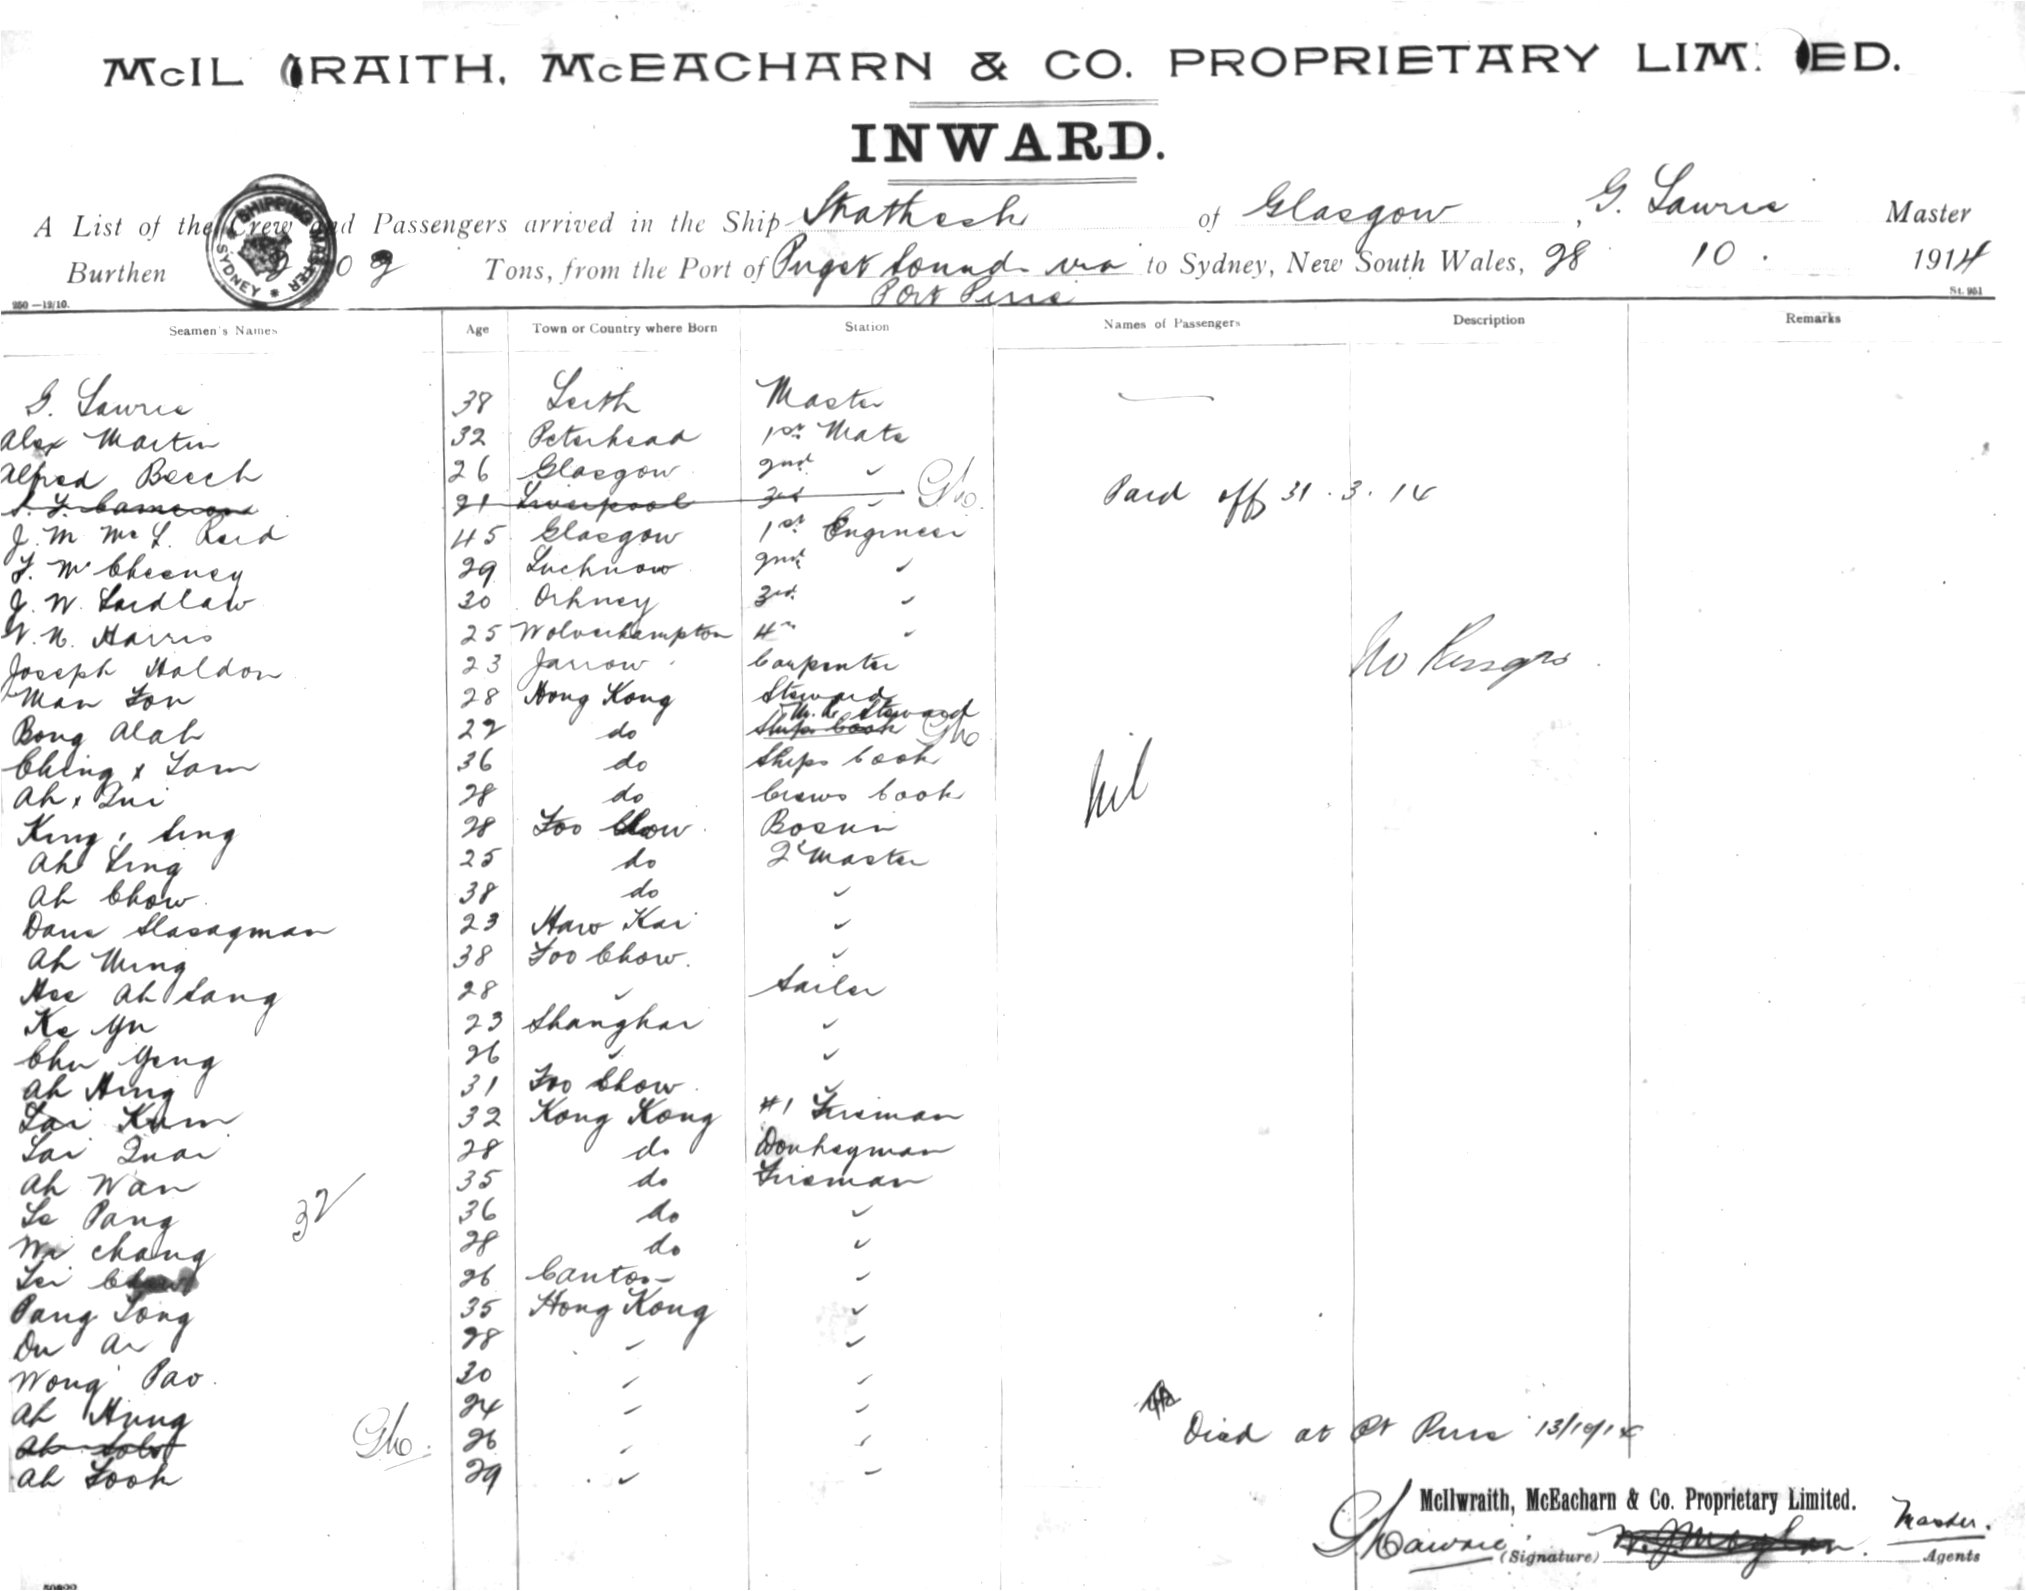 McILWRAITH, McEACHARN & CO. PROPRIETARY LIMITED.
INWARD.
SHIPPING MASTER SYDNEY
A List of the Crew and Passengers arrived in the Ship Strathesk of Glasgow, G. Lawrie Master
Burthen Tons, from the Port of Puget Sound via to Sydney, New South Wales, 28 10. 1914
Port Pirie
250—12/10. St. 951
Seamen's Names Age Town or Country where Born Station Names of Passengers Description Remarks
G. Lawrie 38 Leith Master
Alex Martin 32 Peterhead 1st Mate
Alfred Beech 26 Glasgow 2nd "
Cameron 21 Liverpool 3rd " Paid off 31.3.14
J. M. Mc L. Reid 45 Glasgow 1st Engineer
F. McChesney 29 Lucknow 2nd "
J. W. Laidlaw 30 Orkney 3rd "
W. N. Harris 25 Wolverhampton 4th "
Joseph Haldon 23 Jarrow Carpenter
No Pssngrs
Man Fon 28 Hong Kong Steward
M. R. Steward
Bong Alah 22 do Ships Cook
Ching x Lam 36 do Ships Cook
Ah x Qui 28 do Crews Cook
Nil
King Sing 28 Foo Chow Bosun
Ah Ling 25 do Q'Master
Ah Chow 38 do "
Dane Slasagman 23 Haw Kai "
Ah Ming 38 Foo Chow "
Hee Ah Sang 28 " Sailor
Ke Yu 23 Shanghai "
Chu Yeng 26 " "
Ah Hing 31 Foo Chow "
Lai Kum 32 Kong Kong #1 Fireman
Lai Quai 28 do Donkeyman
Ah Wan 35 do Fireman
32
Le Pang 36 do "
We Chang 28 do "
Lei 26 Canton "
Pang Long 35 Hong Kong "
Du Ar 28 " "
Wong Pao 30 " "
Ah Hung 24 " "
Ah 26 " " Died at Pt Pirie 13/10/14
Ah Fook 29 " "
McIlwraith, McEacharn & Co. Proprietary Limited.
G Lawrie (Signature) Master.
Agents